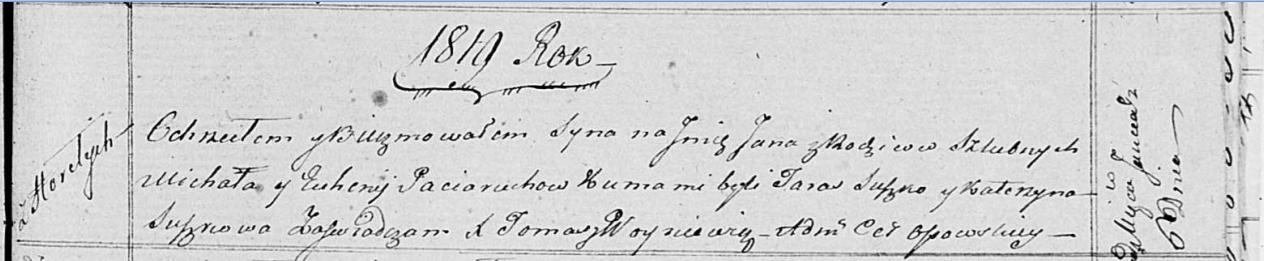 1819 Rok
z Horełych
Ochrzciłem y Bierzmowałem Syna na Jmię Jana z Rodziców Szlubnych
Michała y Euhenij Paciaruchow Kumami byli Taras Suszko y Katerzyna
Suszkowa Zaświadczam X Tomasz Woyniewicz Admr Cer Opowskiey
Mca Januarz
6 Dnia